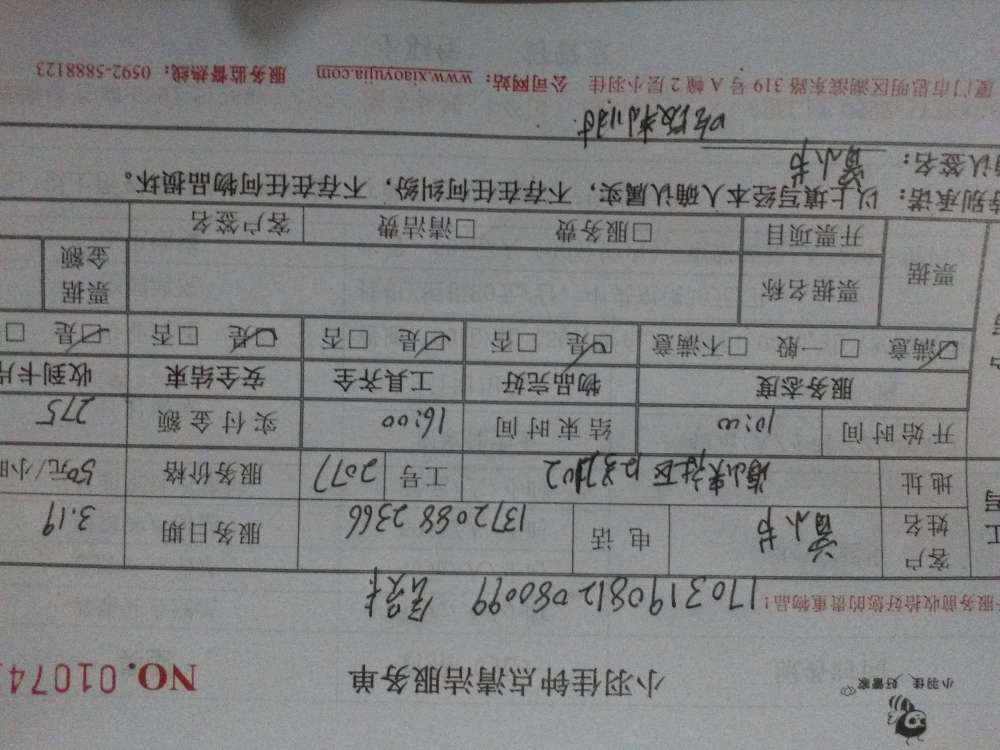 小羽佳 好管家
小羽佳钟点清洁服务单 NO.01074
服务前收拾好您的贵重物品!
170319081208009
客户姓名 电话 13720882366 服务日期 3.19
地址 工号 2077 服务价格 50元/小时
开始时间 10:00 结束时间 16:00 实付金额 275
服务态度 物品完好 工具齐全 安全结束 收到卡片
☑满意 □一般 □不满意 ☑是 □否 ☑是 □否 ☑是 □否 ☑是 □
票据 票据名称 票据金额
开票项目 □服务费 □清洁费 客户签名
特别承诺:以上填写经本人确认属实,不存在任何纠纷,不存在任何物品损坏。
确认签名:
厦门市思明区湖滨东路 319 号 A 幢 2 层小羽佳 公司网站:www.xiaoyujia.com 服务监督热线:0592-5888123